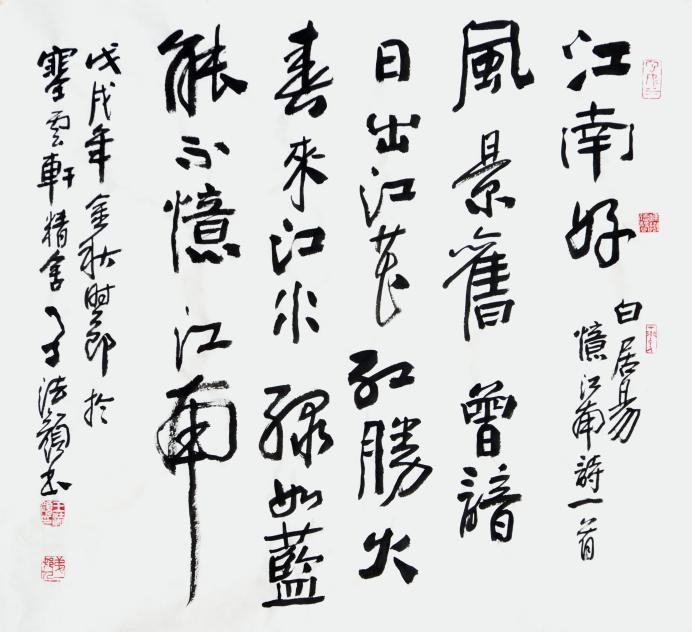 江南好
白居易
憶江南詩一首
風景舊曾諳
日出江花紅勝火
春來江水綠如藍
能不憶江南
戊戌年金秋時節於
雲軒精舍
法顏書